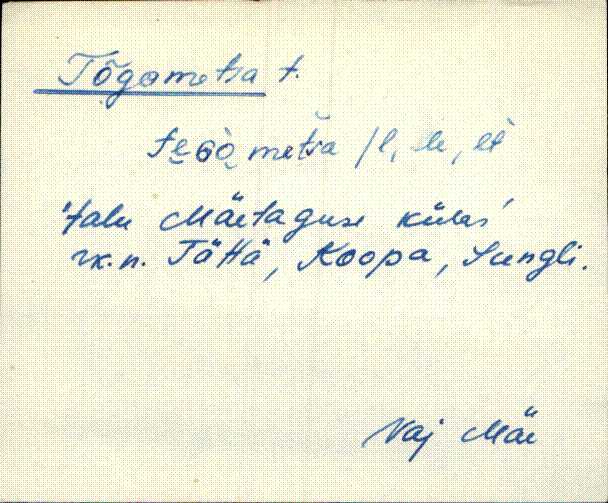 Tõgometsa t.
te̮G̀o̮metsa /l, le, lt
'talu Mäetaguse külas'
rk.n. Tättä, Koopa, Sungli.
Vaj Mäe